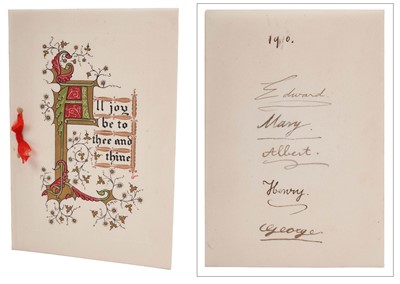 All joy
be to
thee and
thine
1910.
Edward.
Mary.
Albert.
Henry.
George.